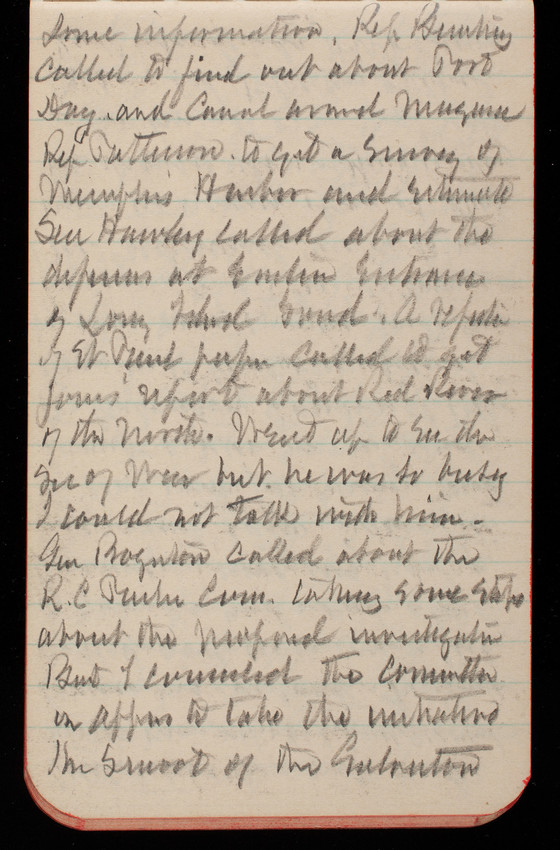 Some information. Rep Bunting
called to find out about Port
Day. and Canal around Niagara
Rep Patterson. to get a Survey of
Memphis Harbor and Estimate
Sen Hawley called about the
defenses at Eastern Entrance
of Long Island Sound. A reporter
of St Paul paper called to get
Jones' report about Red River
of the North. Went up to see the
Sec of War but he was so busy
I could not talk with him.
Gen Boynton called about the
R.C Park Com. taking some steps
about the proposed investigation
But I counseled the committee
to take the initiative
Mr Smoot of the Galveston